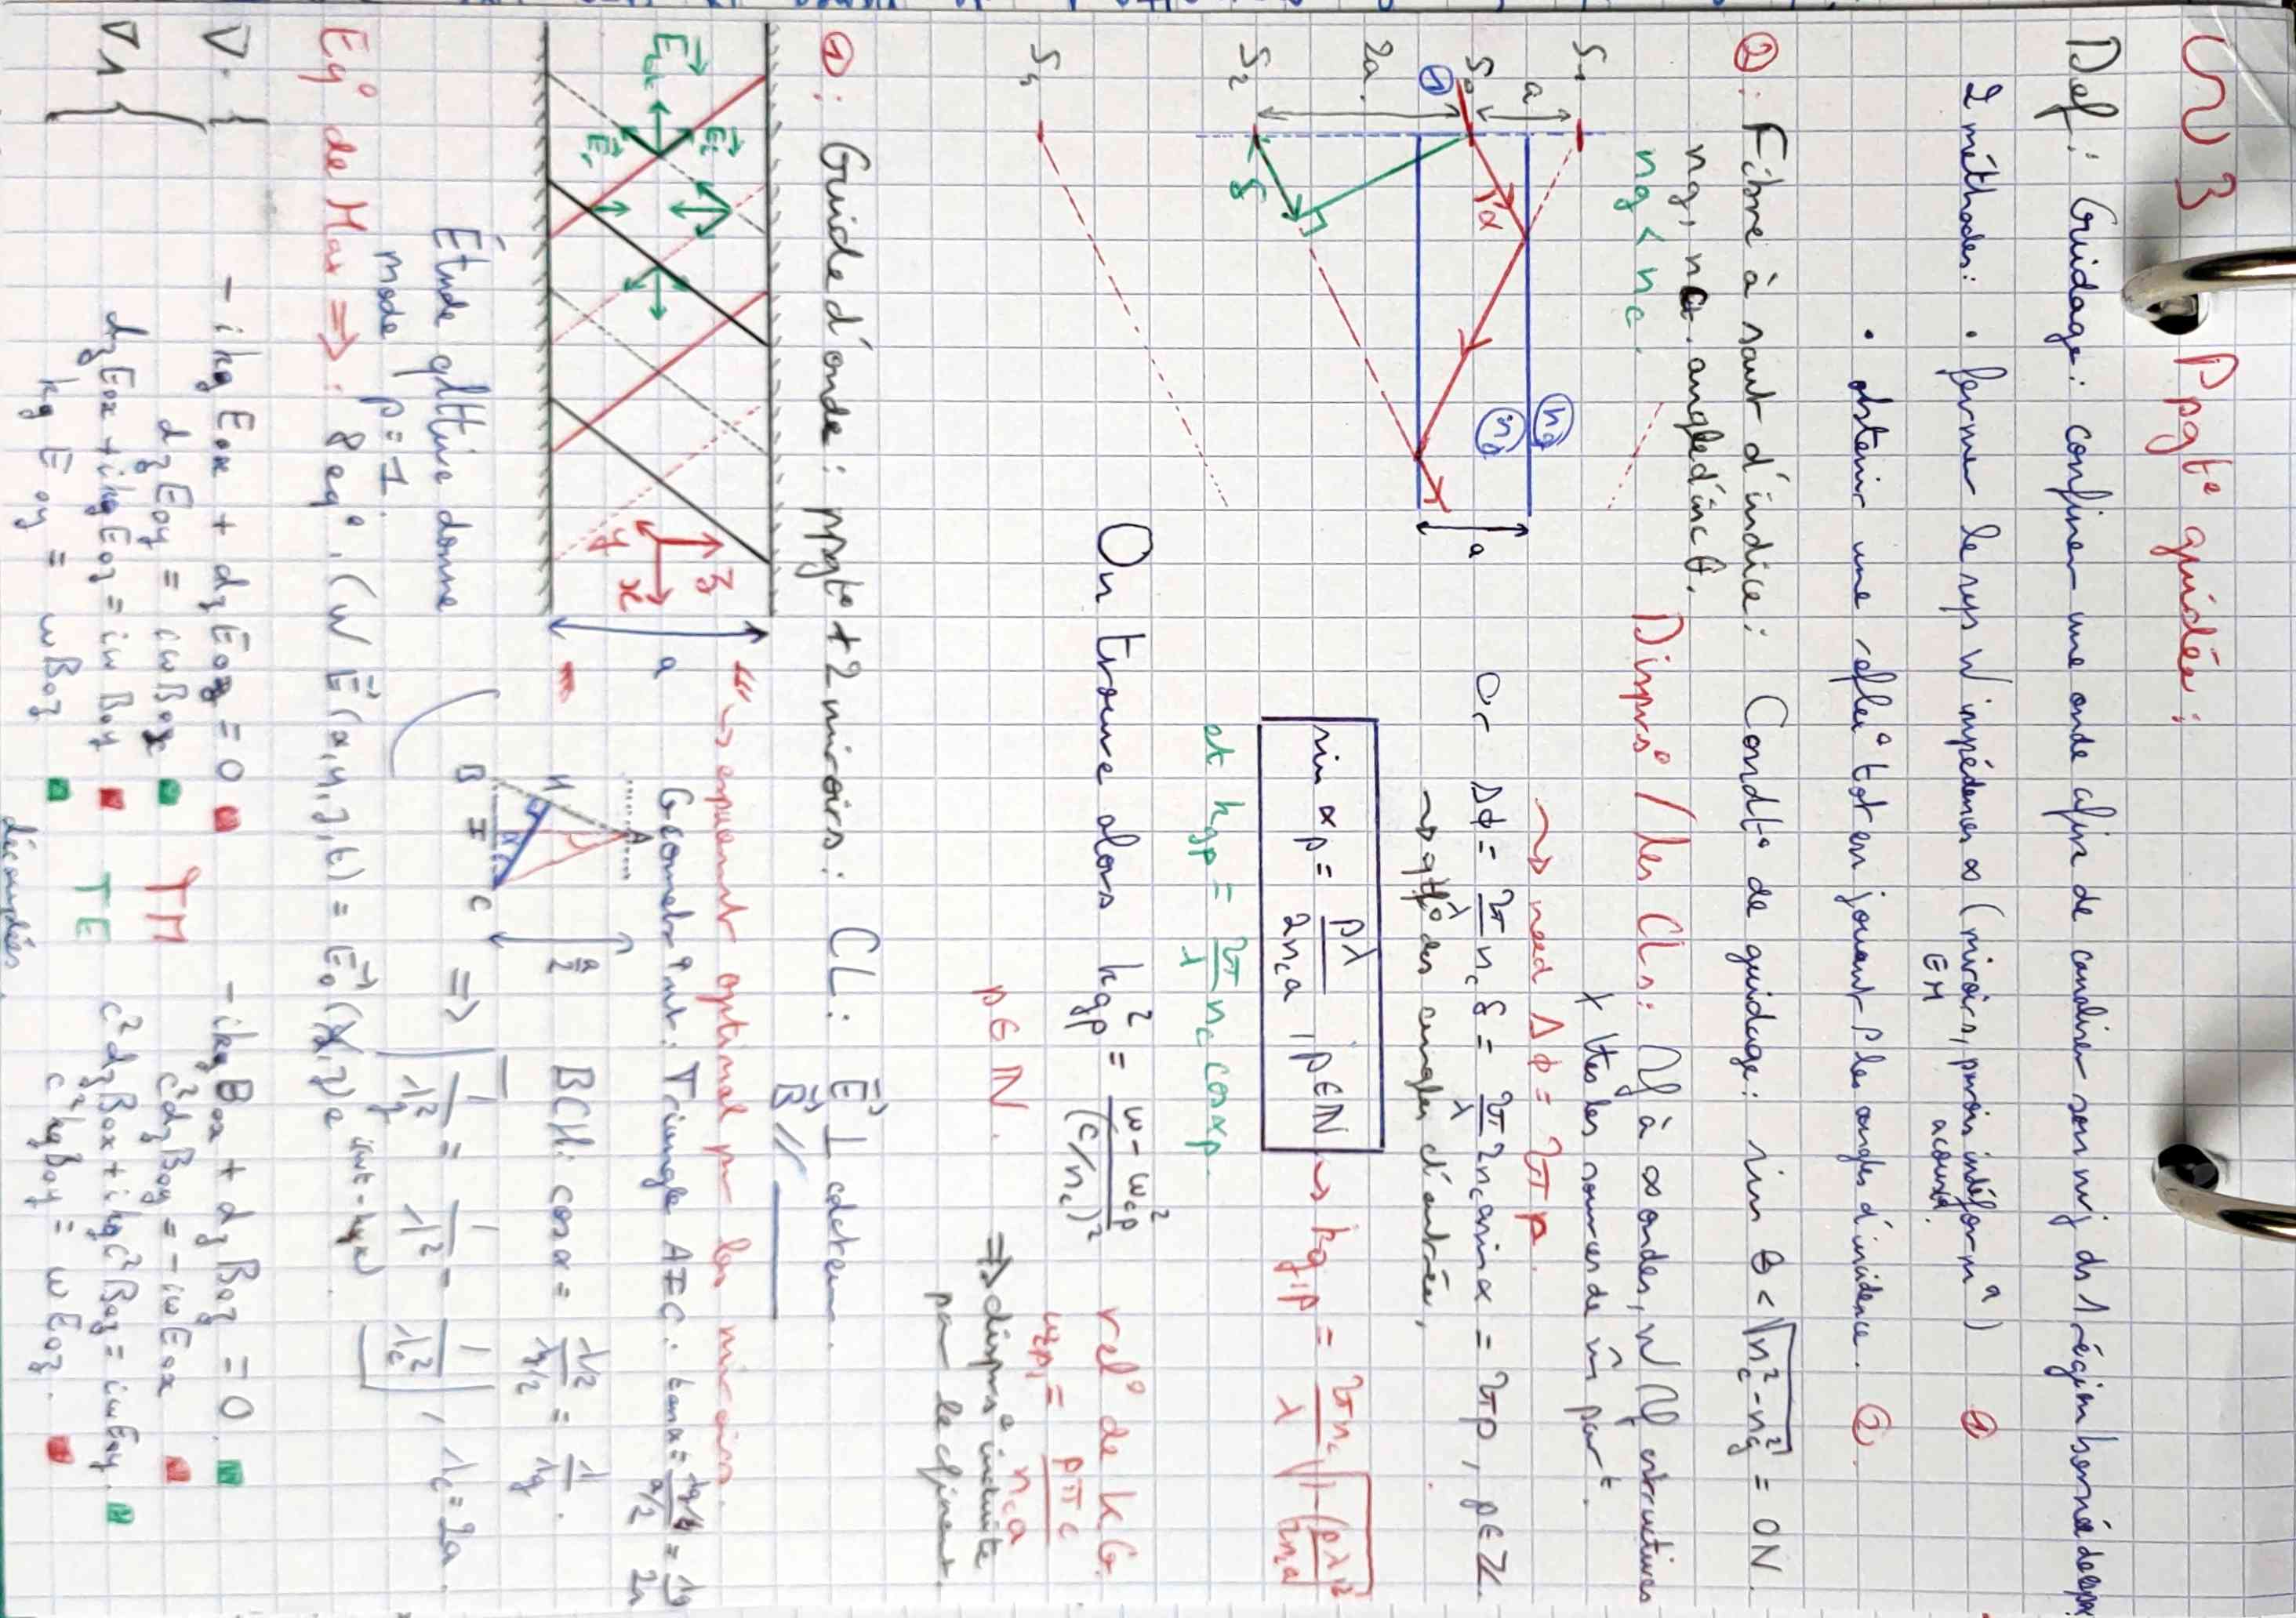 3 Ppgt° guidée :
Def : Guidage : confiner une onde afin de canaliser son nrj ds 1 région bornée de
2 méthodes : • fermer le sys W impédances ∞ (miroirs, parois indéform°) ①
EM acoust.
• obtenir une réflex° tot en jouant les angles d'incidence. ②
② : Fibre à saut d'indice : Condt° de guidage : sin θ < √(nc² - ng²) = ON.
ng, nc. angle d'inc θ.
ng < nc.
Dispers° / les CLs : à ∞ ondes, W constructives
∀ ttes les sources de m̂ part
~> need Δφ = 2πp.
Or Δφ = 2π/λ nc δ = 2π/λ 2nc a sin α = 2πp, p∈Z.
~> qtif° des angles d'entrée,
sin αp = pλ/2nca , p∈N
~> kg,p = 2πnc/λ √(1-(pλ/2nca)²)
et kgp = 2π/λ nc cos αp.
On trouve alors kgp² = ω²-ωcp²/(c/nc)² rel° de KG.
p∈N.
ωcp = pπc/nca
=> dispers° induite
par le cfinement.
S1
a
S0
①
2a
S2
S4
δ
α
ng
nc
a
① : Guide d'onde : ppgt° + 2 miroirs. CL : E ⊥ cdcteur.
B //
~> espacement optimal pr les miroirs.
Géométr° int : Triangle AIC : tan α = λg/4 / a/2 = λg/2a
BCH : cos α = λ/2 / λg/2 = λ/λg.
=> 1/λg² = 1/λ² - 1/λc² , λc = 2a.
A
H
B
I
C
a/2
a
z
x
y
Ei
Er
Étude qltive donne
mode p = 1.
Eq° de Max => : 8 eq°. (W E(x,y,z,t) = E0(y,z) e^(iωt - kgx)
∇· { - ikg E0x + dz E0z = 0
- ikg B0x + dz B0z = 0.
∇∧ { dz E0y = iω B0x
c² dz B0y = -iω E0x
dz E0x + ikg E0z = iω B0y
c² dz B0x + ikg c² B0z = iω E0y.
kg E0y = ω B0z
c² kg B0y = ω E0z.
TM
TE
découplés